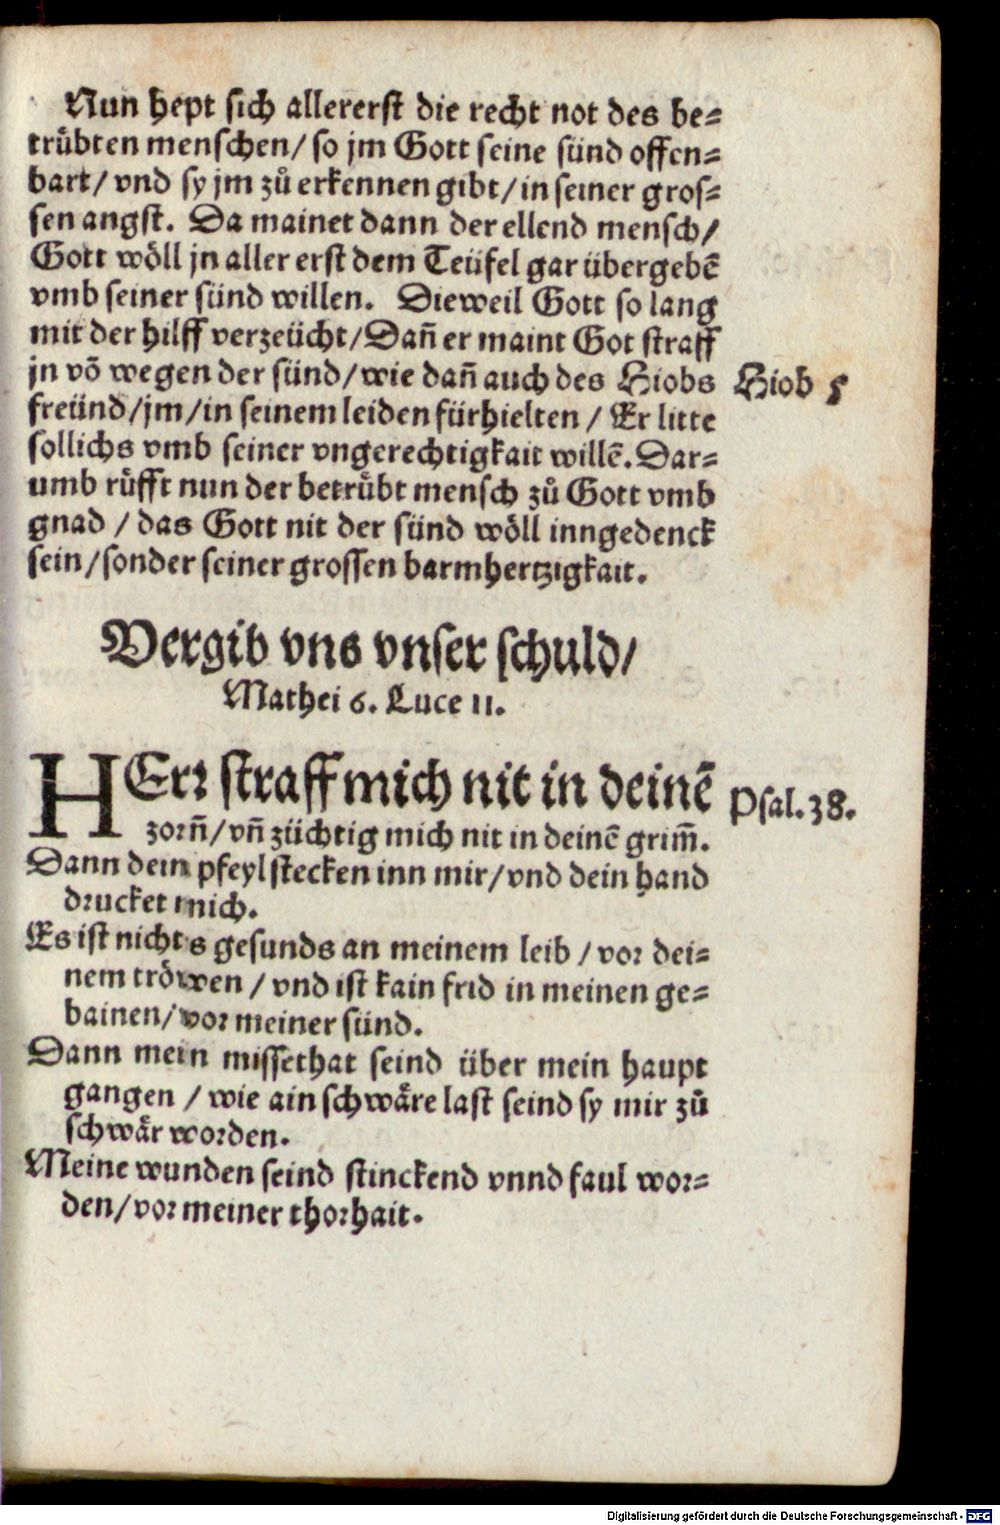 Nun hept sich allererst die recht not des be⸗
trůbten menschen/ so jm Gott seine sünd offen⸗
bart/ vnd sy jm zů erkennen gibt/ in seiner gros⸗
sen angst. Da mainet dann der ellend mensch/
Gott wöll jn aller erst dem Teüfel gar übergebẽ
vmb seiner sünd willen. Dieweil Gott so lang
mit der hilff verzeücht/ Dañ er maint Got straff
jn võ wegen der sünd/ wie dañ auch des Hiobs
Hiob 5
freünd/ jm/ in seinem leiden fürhielten / Er litte
sollichs vmb seiner vngerechtigkait willẽ. Dar⸗
umb růfft nun der betrůbt mensch zů Gott vmb
gnad / das Gott nit der sünd wöll inngedenck
sein/ sonder seiner grossen barmhertzigkait.
Vergib vns vnser schuld/
Mathei 6. Luce 11.
HErr straff mich nit in deinẽ
Psal. 38.
zorñ/ vñ züchtig mich nit in deinẽ grim̃.
Dann dein pfeyl stecken inn mir/ vnd dein hand
drucket mich.
Es ist nichts gesunds an meinem leib / vor dei⸗
nem tröwen / vnd ist kain frid in meinen ge⸗
bainen/ vor meiner sünd.
Dann mein missethat seind über mein haupt
gangen / wie ain schwäre last seind sy mir zů
schwär worden.
Meine wunden seind stinckend vnnd faul wor⸗
den/ vor meiner thorhait.
Digitalisierung gefördert durch die Deutsche Forschungsgemeinschaft - DFG